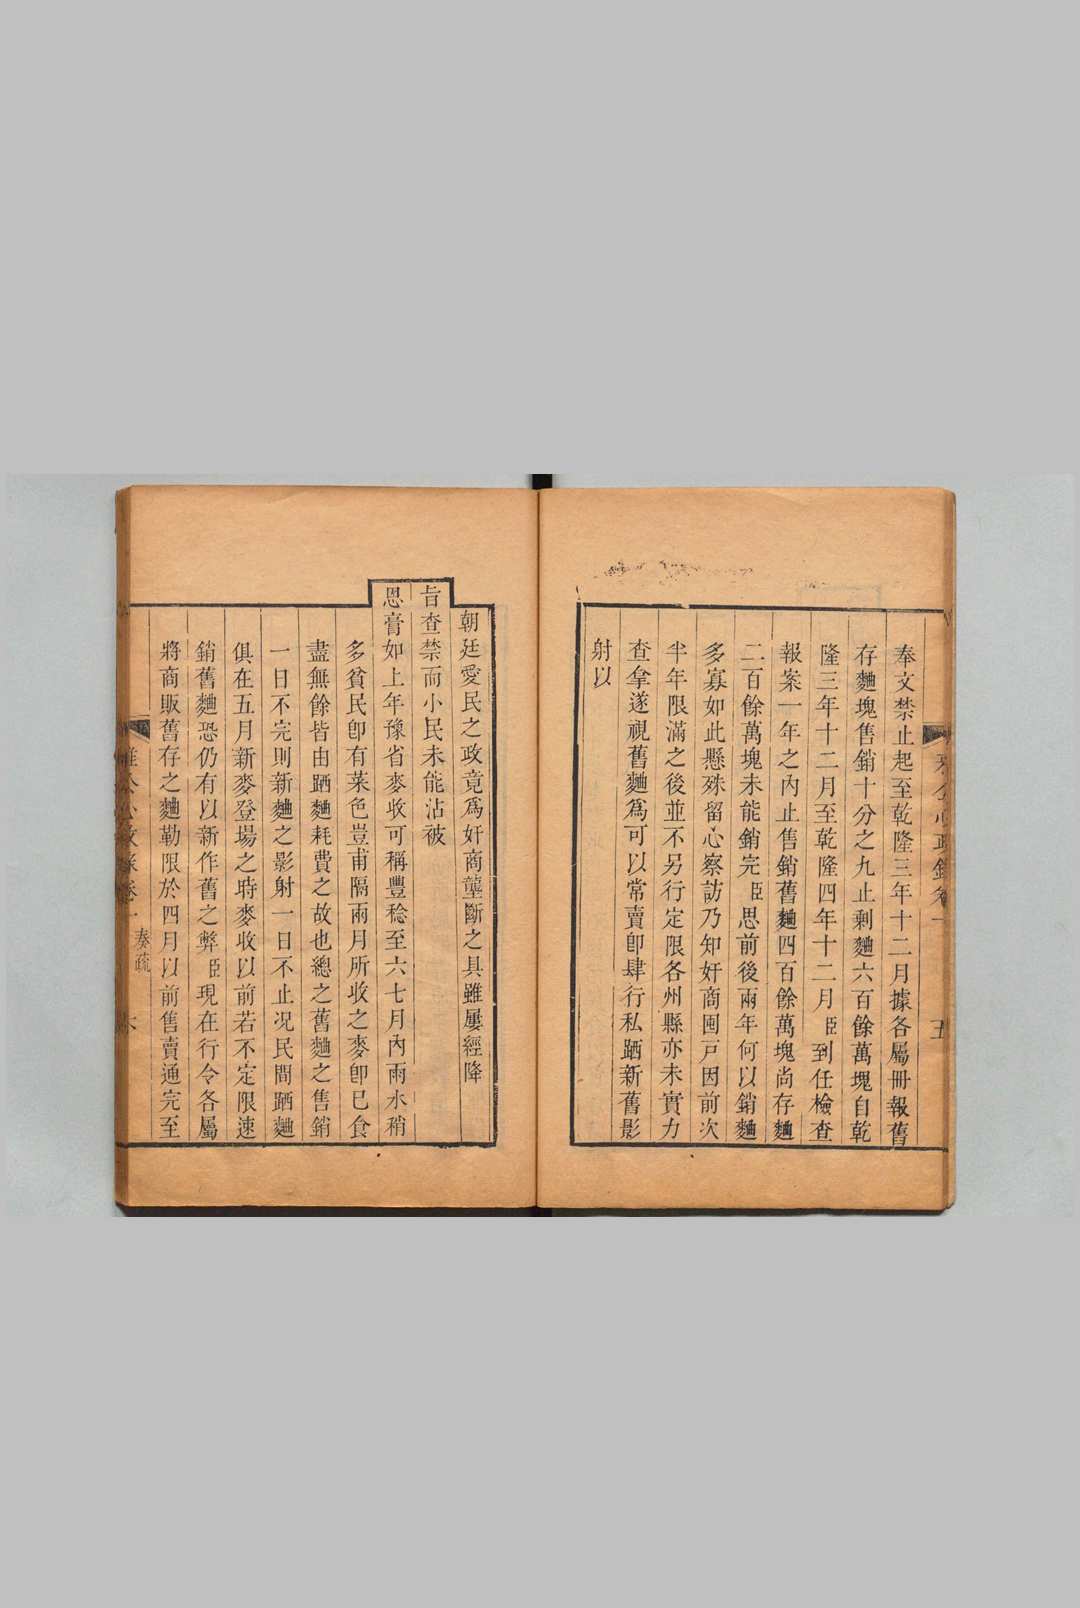 奉文禁止起至乾隆三年十二月據各屬冊報舊
存麯塊售銷十分之九止剩麯六百餘萬塊自乾
隆三年十二月至乾隆四年十二月臣到任檢查
報案一年之內止售銷舊麯四百餘萬塊尚存麯
二百餘萬塊未能銷完臣思前後兩年何以銷麯
多寡如此懸殊留心察訪乃知奸商囤戸因前次
半年限滿之後並不另行定限各州縣亦未實力
查拿遂視舊麯爲可以常賣卽肆行私踩新舊影
射以
朝廷愛民之政竟爲奸商壟斷之具雖屢經降
旨查禁而小民未能沾被
恩膏如上年豫省麥收可稱豐稔至六七月內雨水稍
多貧民卽有菜色豈甫隔兩月所收之麥卽已食
盡無餘皆由踩麯耗費之故也總之舊麯之售銷
一日不完則新麯之影射一日不止况民間踩麯
俱在五月新麥登場之時麥收以前若不定限速
銷舊麯恐仍有以新作舊之弊臣現在行令各屬
將商販舊存之麯勒限於四月以前售賣通完至
雅公心政錄卷一 奏疏